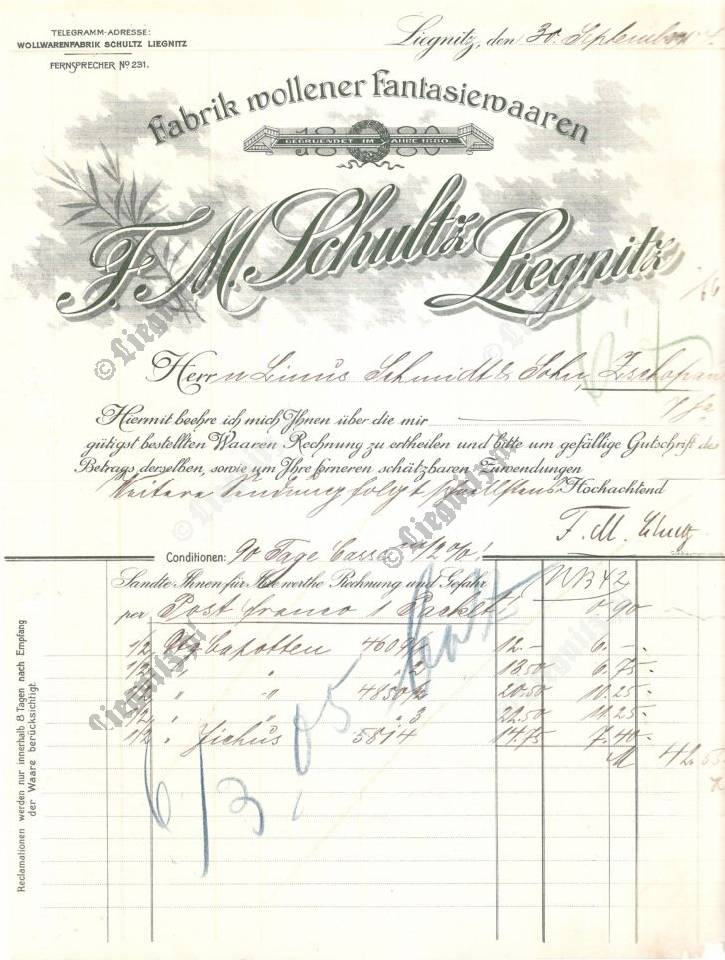 TELEGRAMM-ADRESSE:
WOLLWARENFABRIK SCHULTZ LIEGNITZ
FERNSPRECHER No 231.
Liegnitz, den 30. September
Fabrik wollener Fantasiewaaren
1880
GEGRUENDET IM JAHRE 1880.
F. M. Schultz Liegnitz
Herrn Linus Schmidt & Sohn, Zschopau
Hiermit beehre ich mich Ihnen über die mir
gütigst bestellten Waaren Rechnung zu ertheilen und bitte um gefällige Gutschrift des
Betrags derselben, sowie um Ihre ferneren schätzbaren Zuwendungen
Weitere Sendung folgt schnellstens. Hochachtend
F. M. Schultz
Conditionen: 90 Tage Cassa 2%!
Sandte Ihnen für Ihre werthe Rechnung und Gefahr
per Post franco 1 Packet! 0.90
1/2 Capotten 12.- 6.-
1/2 " " 13.50 6.75
1/2 " " 4850/2 20.50 10.25
1/2 " " 3 22.50 11.25
1/2 " Fichus 5814 14.75 7.40
M 42.55
6/3. 05
Reclamationen werden nur innerhalb 8 Tagen nach Empfang
der Waare berücksichtigt.
© Liegnitz.pl